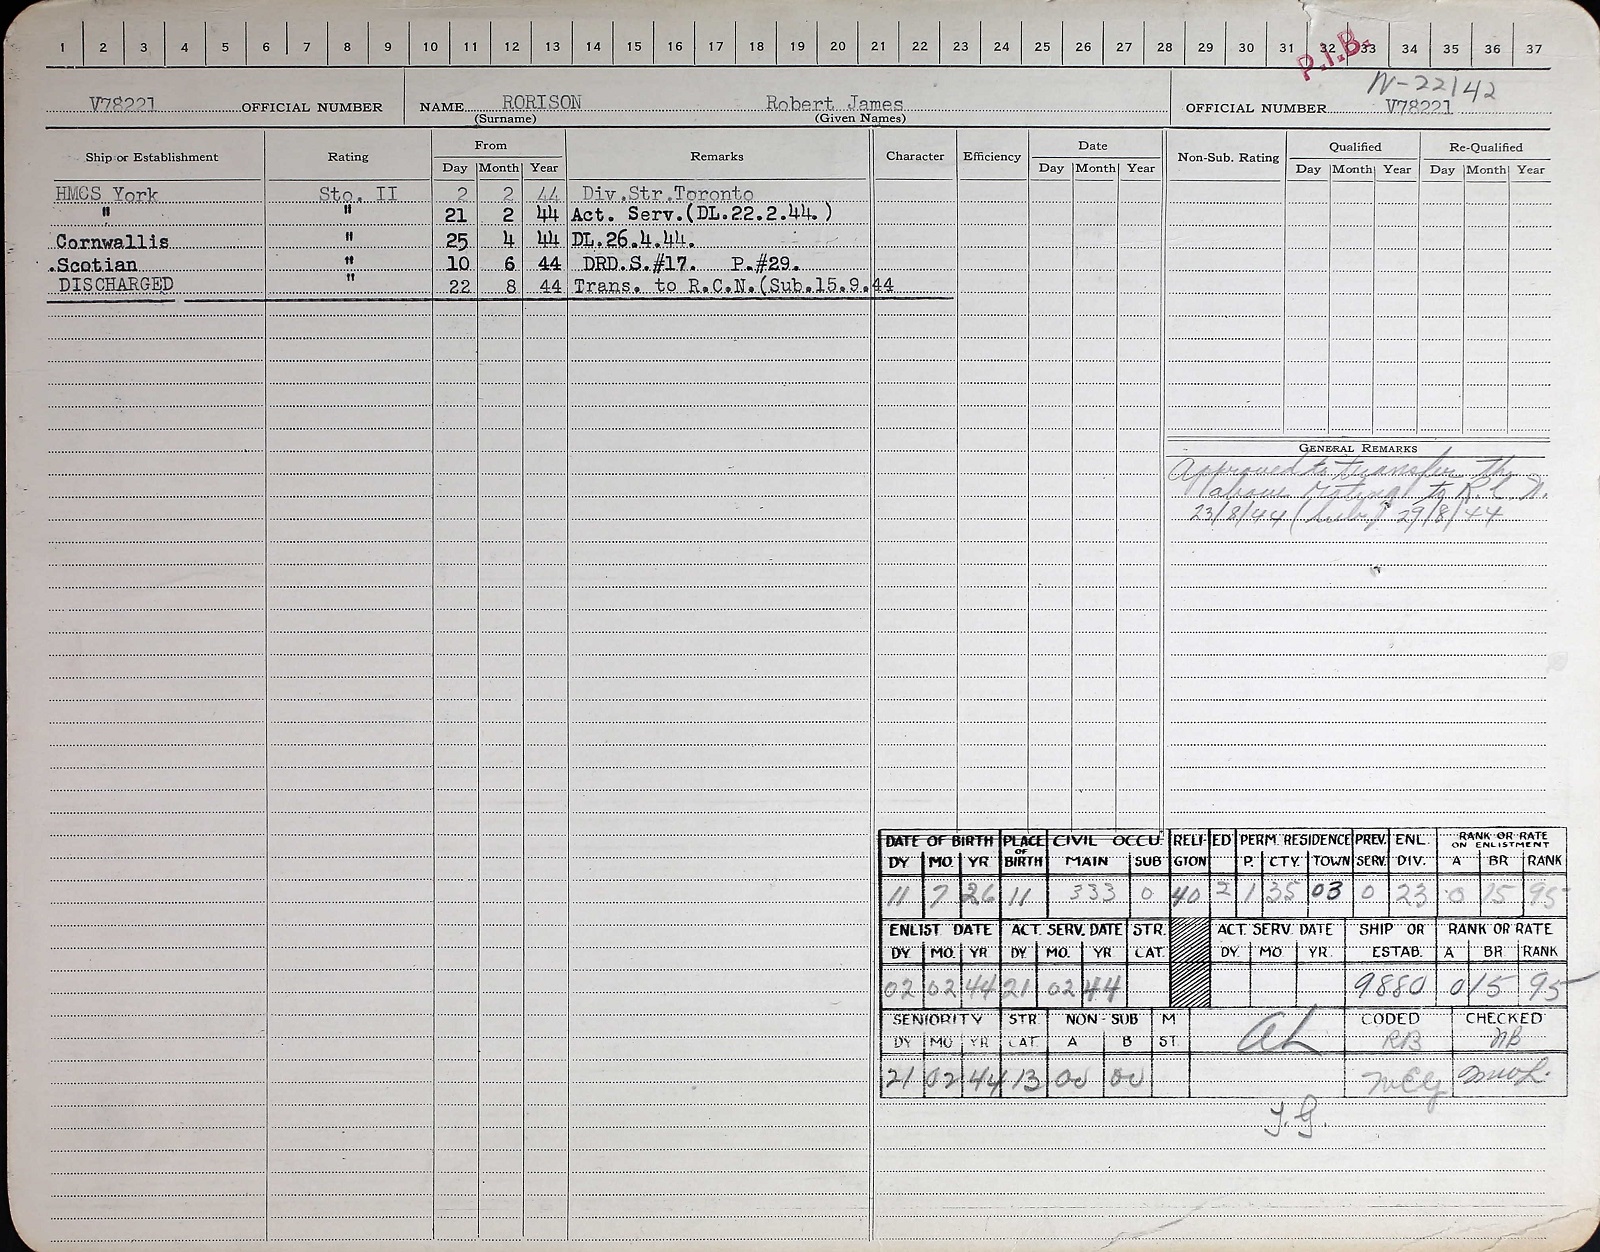 1 2 3 4 5 6 7 8 9 10 11 12 13 14 15 16 17 18 19 20 21 22 23 24 25 26 27 28 29 30 31 32 33 34 35 36 37
P.I.B.
N-22142
V78221 OFFICIAL NUMBER NAME RORISON Robert James OFFICIAL NUMBER V78221
(Surname) (Given Names)
Ship or Establishment Rating From Remarks Character Efficiency Date Non-Sub. Rating Qualified Re-Qualified
Day Month Year Day Month Year Day Month Year Day Month Year
HMCS York Sto. II 2 2 44 Div.Str.Toronto
" " 21 2 44 Act. Serv.(DL.22.2.44.)
Cornwallis " 25 4 44 DL.26.4.44.
.Scotian " 10 6 44 DRD.S.#17. P.#29.
DISCHARGED " 22 8 44 Trans. to R.C.N.(Sub.15.9.44
GENERAL REMARKS
Approved to transfer the
above rating to R.C.N.
23/8/44 (Sub.) 29/8/44
DATE OF BIRTH PLACE OF BIRTH CIVIL OCCU. RELIGION ED PERM. RESIDENCE PREV. SERV. ENL. DIV. RANK OR RATE ON ENLISTMENT
DY MO. YR MAIN SUB P. CTY. TOWN A BR RANK
11 7 26 11 333 0 40 2 1 35 03 0 23 0 15 95
ENLIST DATE ACT. SERV. DATE STR. CAT. ACT. SERV. DATE SHIP OR ESTAB. RANK OR RATE
DY. MO. YR DY. MO. YR DY. MO YR. A BR RANK
02 02 44 21 02 44 9880 0 15 95
SENIORITY STR. CAT. NON-SUB M ST. CODED CHECKED
DY MO YR A B RB NB
21 02 44 13 00 00